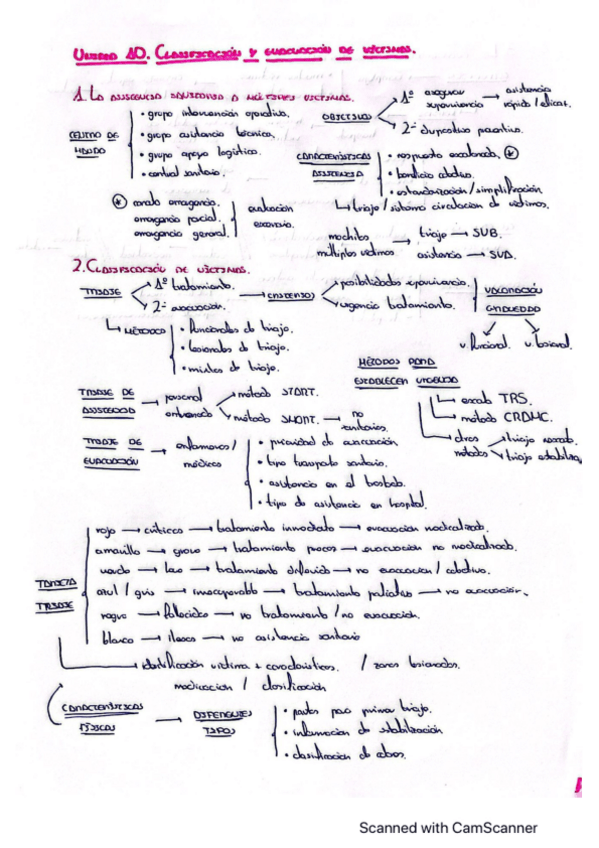 UNIDAD 10. CLASIFICACIÓN Y EVACUACIÓN DE VÍCTIMAS.
1. LA ASISTENCIA SANITARIA A MÚLTIPLES VÍCTIMAS.
CENTRO DE MANDO
• grupo intervención operativo.
• grupo asistencia técnica.
• grupo apoyo logístico.
• control sanitario.
OBJETIVO
1º asegurar supervivencia → asistencia rápida / eficaz.
2º dispositivo preventivo.
CARACTERÍSTICAS ASISTENCIA
• respuesta escalonada. *
• beneficio colectivo.
• estandarización / simplificación
↳ triaje / sistema circulación de víctimas.
* conato emergencia.
emergencia parcial.
emergencia general.
evaluación escenario.
mochilas múltiples víctimas
triaje → SUB.
asistencia → SUB.
2. CLASIFICACIÓN DE VÍCTIMAS.
TRIAJE
1º tratamiento.
2º evacuación.
→ CRITERIOS
posibilidades supervivencia.
urgencia tratamiento.
VALORACIÓN GRAVEDAD
v. funcional. v. lesional.
↳ MÉTODOS
• funcionales de triaje.
• lesionales de triaje.
• mixtos de triaje.
MÉTODOS PARA ESTABLECER URGENCIA
↳ escala TRS.
↳ método CRAMC.
↳ otros métodos
TRIAJE DE ASISTENCIA → personal entrenado
método START.
método SHORT. → no sanitarios.
TRIAJE DE EVACUACIÓN → enfermeros / médicos
• prioridad de evacuación.
• tipo transporte sanitario.
• asistencia en el traslado.
• tipo de asistencia en hospital.
TARJETA TRIAJE
rojo → críticos → tratamiento inmediato → evacuación medicalizada.
amarillo → grave → tratamiento precoz → evacuación no medicalizada.
verde → leve → tratamiento diferido → no evacuación / colectivo.
azul / gris → irrecuperable → tratamiento paliativo → no evacuación.
negro → fallecidos → no tratamiento / no evacuación.
blanco → ilesos → no asistencia sanitaria
→ identificación víctima + características. / zonas lesionadas.
medicación / clasificación
CARACTERÍSTICAS FÍSICAS → DIFERENTES TIPOS
• pautas para primer triaje.
• información de estabilización
• clasificación de
Scanned with CamScanner